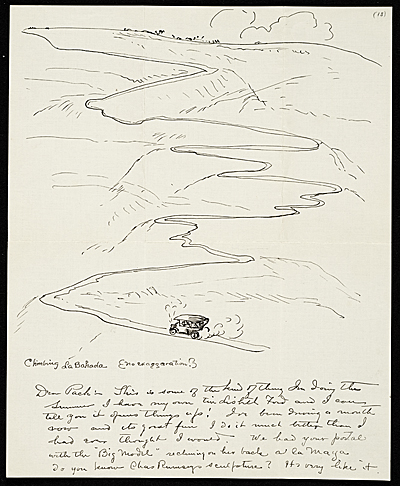 (13)
Climbing La Bahada (no exaggeration!)
Dear Pach:- This is some of the kind of thing I'm doing this
Summer I have my own tin Lishtil Ford and I can
tell you it opens things up! I've been driving a month
now and its great fun I do it much better than I
had ever thought I would. We had your postal
with the "Big Model" reclining on her back a la Maya
Do you know Chas Rumsey's sculpture? Its very like it.